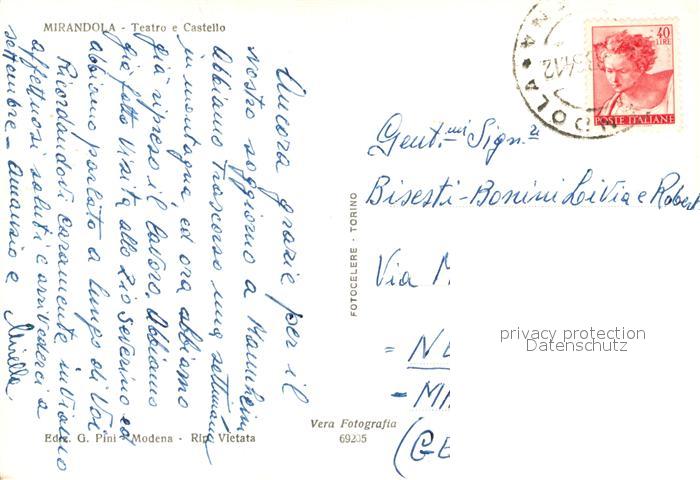 MIRANDOLA - Teatro e Castello
Ancora grazie per il
nostro soggiorno a Mannheim
Abbiamo trascorso una settimana
in montagna, ed ora abbiamo
già ripreso il lavoro. Abbiamo
già fatto visita allo zio Severino ed
abbiamo parlato a lungo di Voi
Ricordandovi caramente inviamo
affettuosi saluti e arrivederci a
settembre - Amausio e Mirella
Ediz. G. Pini - Modena - Rip. Vietata
FOTOCELERE - TORINO
Vera Fotografia
69205
40
LIRE
POSTE ITALIANE
Gent.mi Sign.ri
Bisesti-Bonini Livia e Robert
Via
privacy protection
Datenschutz